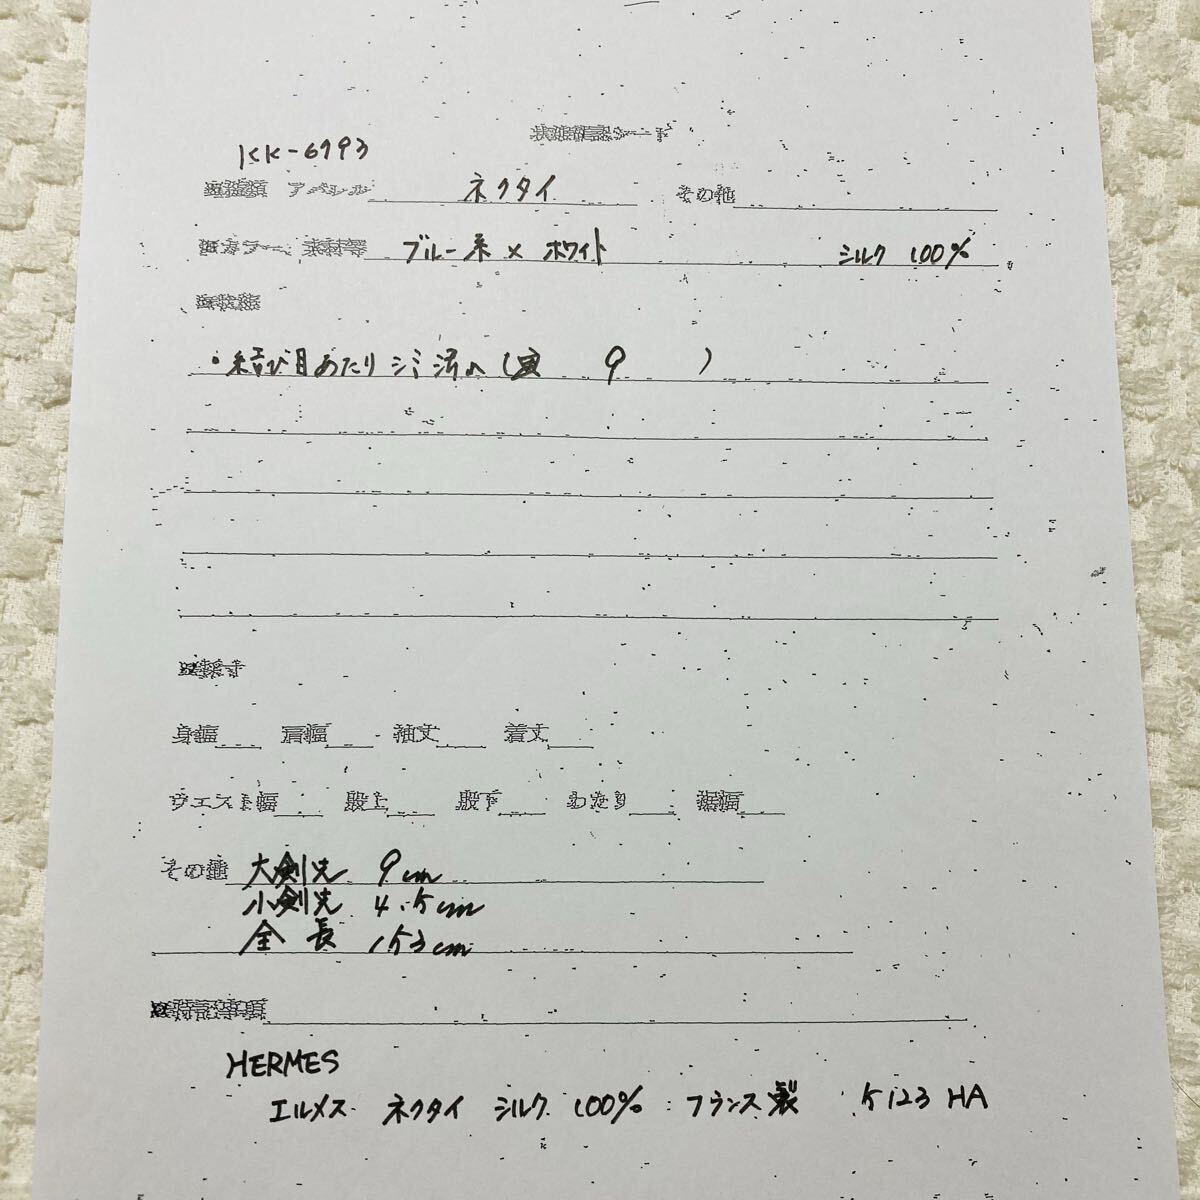 状態確認シート
KK-6793
■種類 アパレル ネクタイ その他
■カラー、素材等 ブルー系 × ホワイト シルク 100%
■状態
・結び目あたり シミ 汚れ ( 9 )
■採寸
身幅 肩幅 袖丈 着丈
ウエスト幅 股上 股下 わたり 裾幅
その他 大剣先 9cm
小剣先 4.5cm
全長 153cm
■特記事項
HERMES
エルメス ネクタイ シルク 100% フランス製 5123 HA